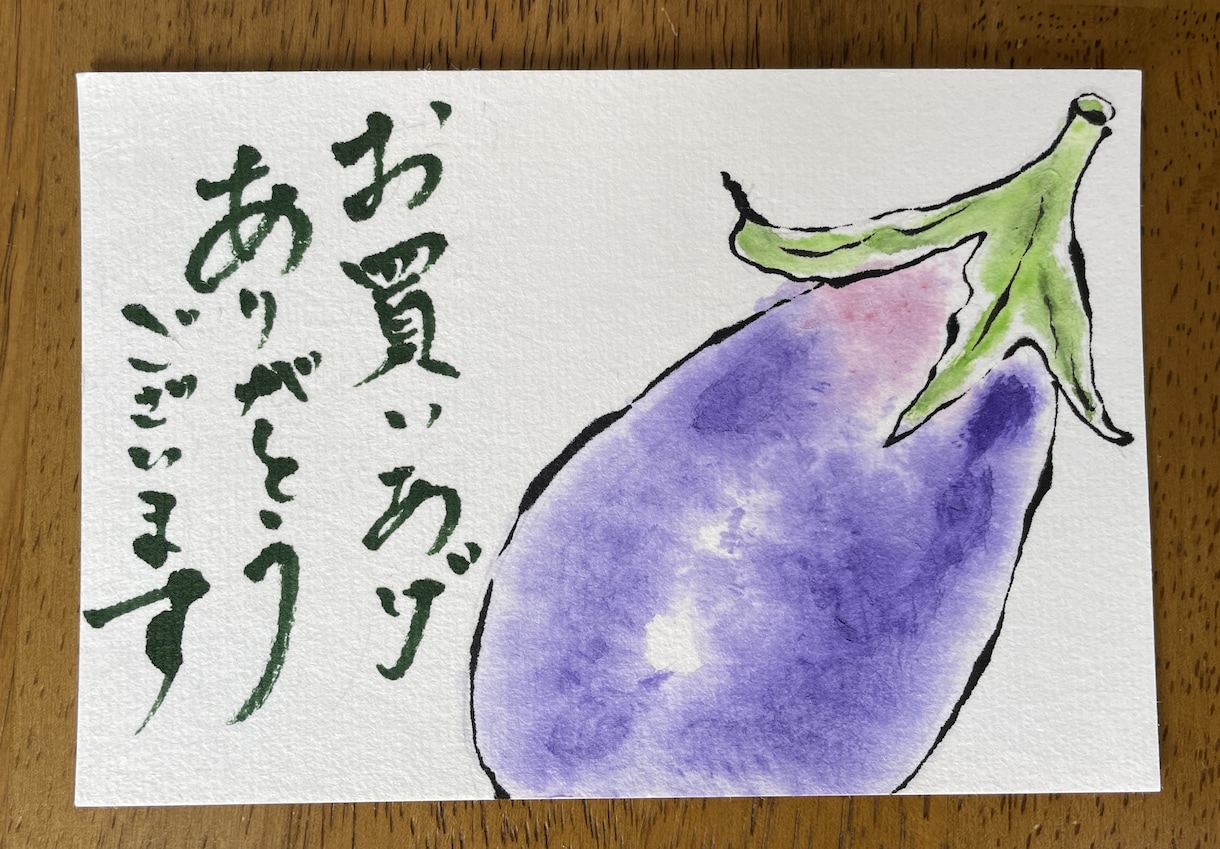 お買いあげ
ありがとう
ございます